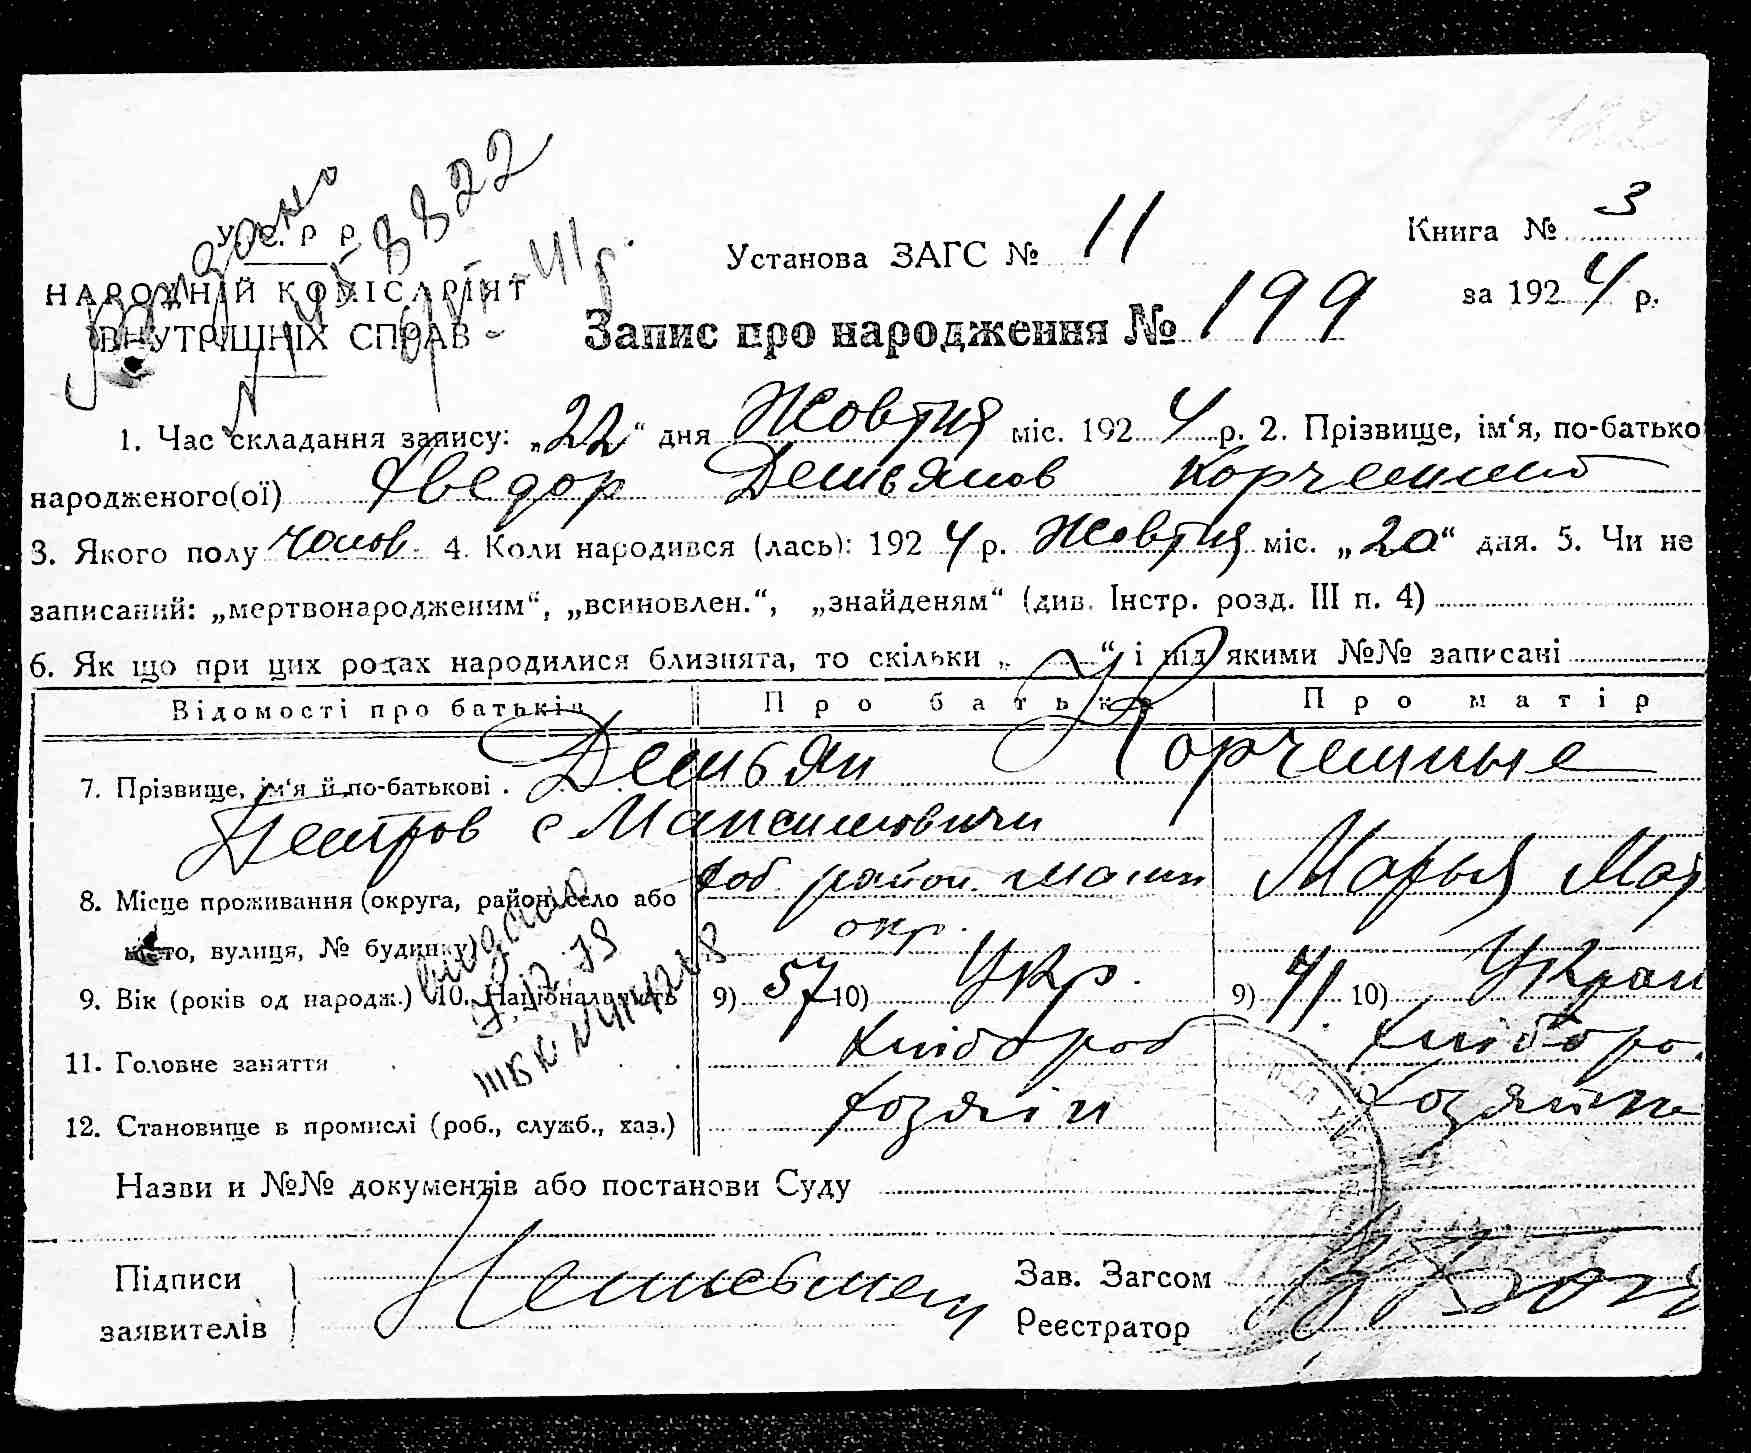 182
Книга № 3
за 1924 р.
У. С. Р. Р.
НАРОДНІЙ КОМІСАРІЯТ
ВНУТРІШНІХ СПРАВ
Установа ЗАГС № 11
Запис про народження № 199
1. Час складання запису: „22“ дня Жовтня міс. 1924 р. 2. Прізвище, ім‘я, по-батько
народженого(ої) Хведор Демьянов Корчемний
3. Якого полу чолов. 4. Коли народився (лась): 1924 р. Жовтня міс. „20“ дня. 5. Чи не
записаний: „мертвонародженим“, „всиновлен.“, „знайденям“ (див. Інстр. розд. III п. 4)
6. Як що при цих родах народилися близнята, то скільки „ “ і під якими №№ записані
Відомості про батьків Про батька Про матір
7. Прізвище, ім‘я й по-батькові . Демьян Корчемные
8. Місце проживання (округа, район, село або район.
місто, вулиця, № будинку) окр.
9. Вік (років од народж.) 10. Національність 9) 57 10) Укр. 9) 41. 10) Украи
11. Головне заняття Хлібороб Хліборо.
12. Становище в промислі (роб., служб., хаз.) Хозяїн Хозяйка
видано
Назви и №№ документів або постанови Суду
Підписи
заявителів
Зав. Загсом
Реєстратор